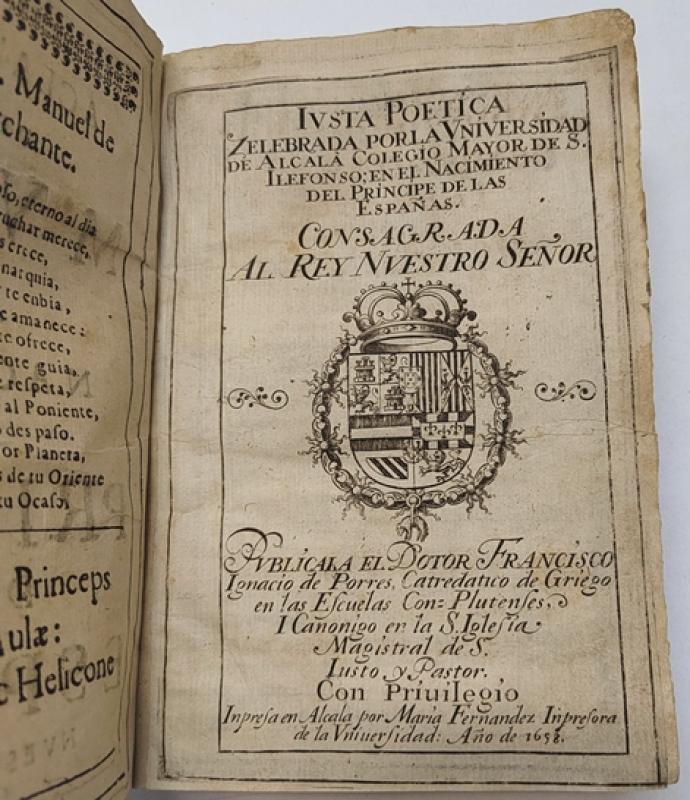 Manuel de
chante.
oso, eterno al dia
uchar merece,
s crece,
narquia,
te enbia,
e amanece:
te ofrece,
ente guia,
e respeta,
al Poniente,
des paso.
or Planeta,
s de tu Oriente
tu Ocaso,
Princeps
ulæ:
c Helicone
IVSTA POETICA
ZELEBRADA POR LA VNIVERSIDAD
DE ALCALÁ COLEGIO MAYOR DE S.
ILEFONSO; EN EL NACIMIENTO
DEL PRINCIPE DE LAS
ESPAÑAS.
CONSAGRADA
AL REY NVESTRO SEÑOR
PVBLÍCALA EL DOTOR FRANCISCO
Ignacio de Porres, Catredatico de Griego
en las Escuelas Con= Plutenses,
I Canonigo en la S. Iglesia
Magistral de S.
Iusto y Pastor.
Con Priuilegio
Inpresa en Alcala por Maria Fernandez Inpresora
de la Vniuersidad: Año de 1658.